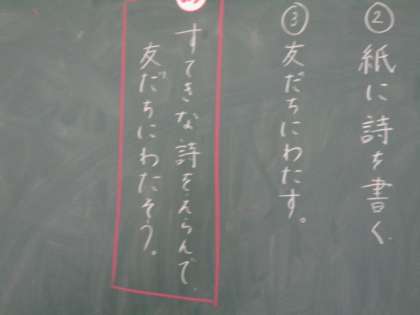 ② 紙に詩を書く
③ 友だちにわたす。
すてきな詩をえらんで、
友だちにわたそう。